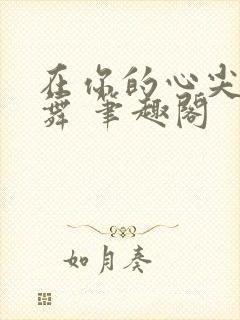 在你的心尖
舞 笔趣阁
如月奏